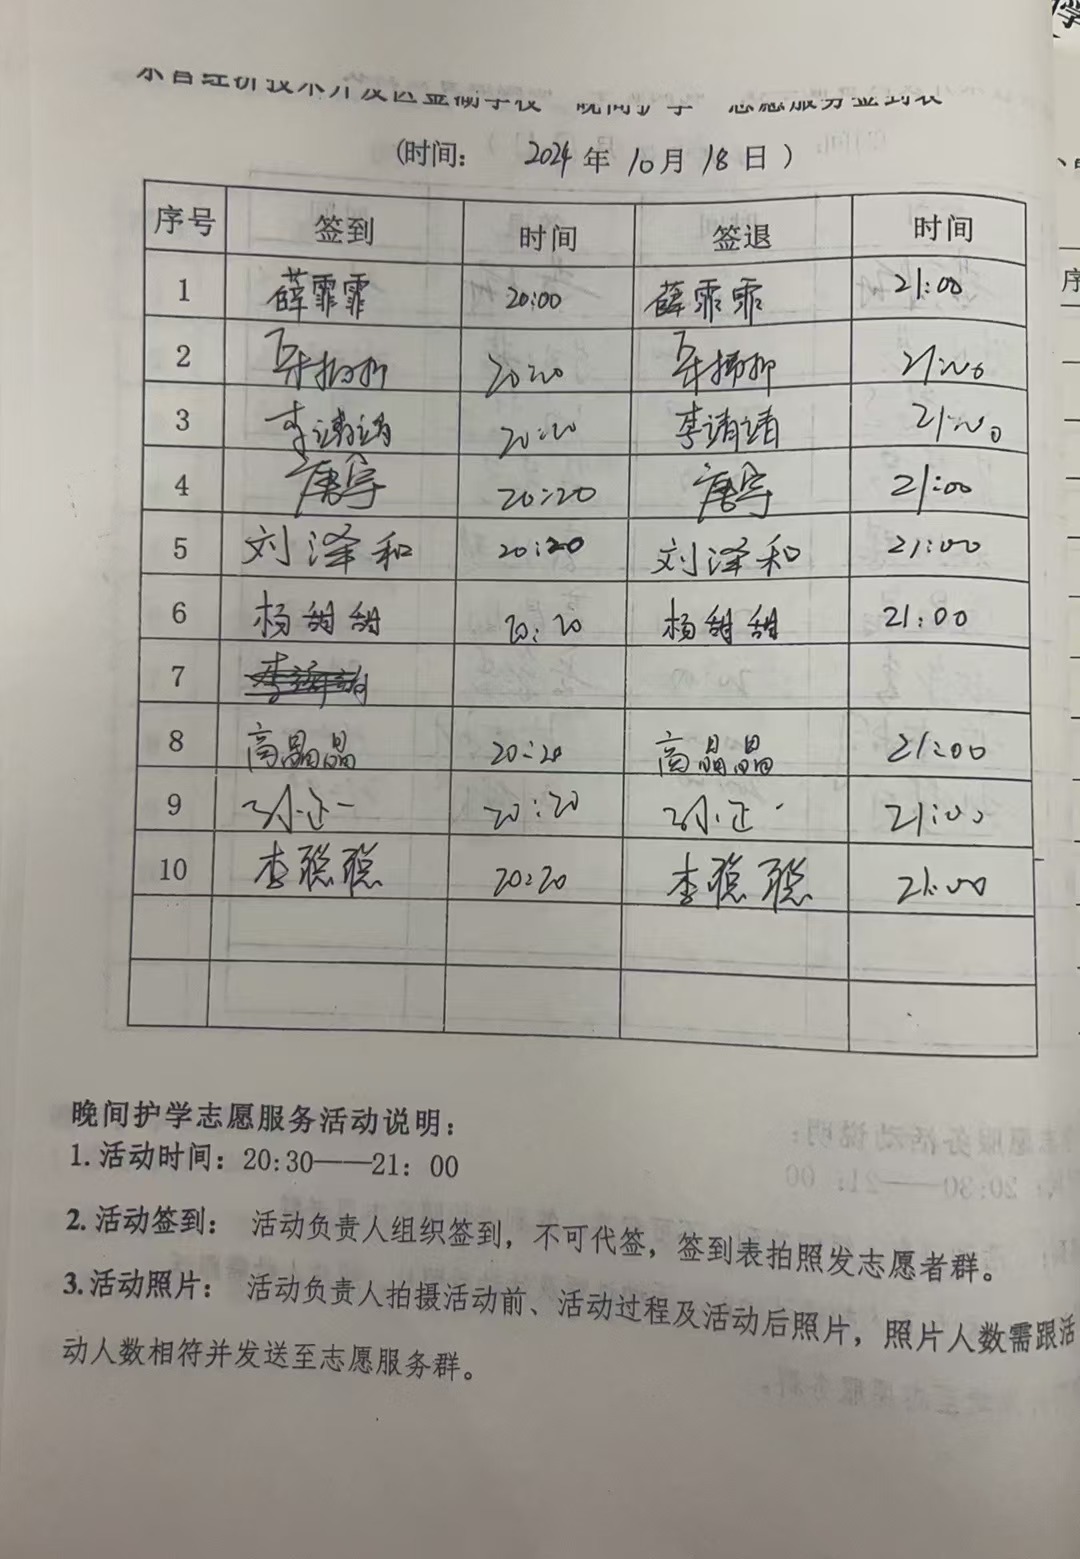 东营经济技术开发区金湖学校“晚间护学”志愿服务签到表
(时间: 2024年10月18日)
序号 签到 时间 签退 时间
1 薛霏霏 20:00 薛霏霏 21:00
2 20:20 21:00
3 李靖靖 20:20 李靖靖 21:00
4 唐宇 20:20 唐宇 21:00
5 刘泽和 20:20 刘泽和 21:00
6 杨甜甜 20:20 杨甜甜 21:00
7
8 高晶晶 20:20 高晶晶 21:00
9 孙正一 20:20 孙正一 21:00
10 李聪聪 20:20 李聪聪 21:00
晚间护学志愿服务活动说明:
1.活动时间:20:30——21:00
2.活动签到: 活动负责人组织签到,不可代签,签到表拍照发志愿者群。
3.活动照片: 活动负责人拍摄活动前、活动过程及活动后照片,照片人数需跟活
动人数相符并发送至志愿服务群。